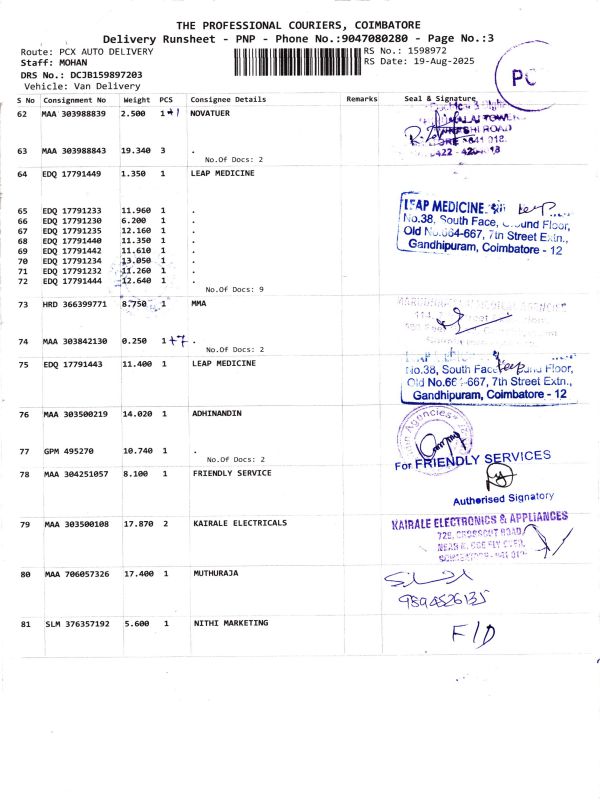 THE PROFESSIONAL COURIERS, COIMBATORE
Delivery Runsheet - PNP - Phone No.:9047080280 - Page No.:3
Route: PCX AUTO DELIVERY RS No.: 1598972
Staff: MOHAN RS Date: 19-Aug-2025
DRS No.: DCJB159897203
Vehicle: Van Delivery
PC
S No Consignment No Weight PCS Consignee Details Remarks Seal & Signature
62 MAA 303988839 2.500 1+1 NOVATUER
63 MAA 303988843 19.340 3 .
No.Of Docs: 2
64 EDQ 17791449 1.350 1 LEAP MEDICINE
LEAP MEDICINE
No.38, South Face, Ground Floor,
Old No.664-667, 7th Street Extn.,
Gandhipuram, Coimbatore - 12
65 EDQ 17791233 11.960 1 .
66 EDQ 17791230 6.200 1 .
67 EDQ 17791235 12.160 1 .
68 EDQ 17791440 11.350 1 .
69 EDQ 17791442 11.610 1 .
70 EDQ 17791234 13.050 1 .
71 EDQ 17791232 11.260 1 .
72 EDQ 17791444 12.640 1 .
No.Of Docs: 9
73 HRD 366399771 8.750 1 MMA
74 MAA 303842130 0.250 1+7 .
No.Of Docs: 2
75 EDQ 17791443 11.400 1 LEAP MEDICINE
No.38, South Face Floor,
Old No.664-667, 7th Street Extn.,
Gandhipuram, Coimbatore - 12
76 MAA 303500219 14.020 1 ADHINANDIN
Agencies
77 GPM 495270 10.740 1 .
No.Of Docs: 2
78 MAA 304251057 8.100 1 FRIENDLY SERVICE
For FRIENDLY SERVICES
Authorised Signatory
79 MAA 303500108 17.870 2 KAIRALE ELECTRICALS
KAIRALE ELECTRONICS & APPLIANCES
725, CROSSCUT ROAD
80 MAA 706057326 17.400 1 MUTHURAJA
9894526135
81 SLM 376357192 5.600 1 NITHI MARKETING
F/D